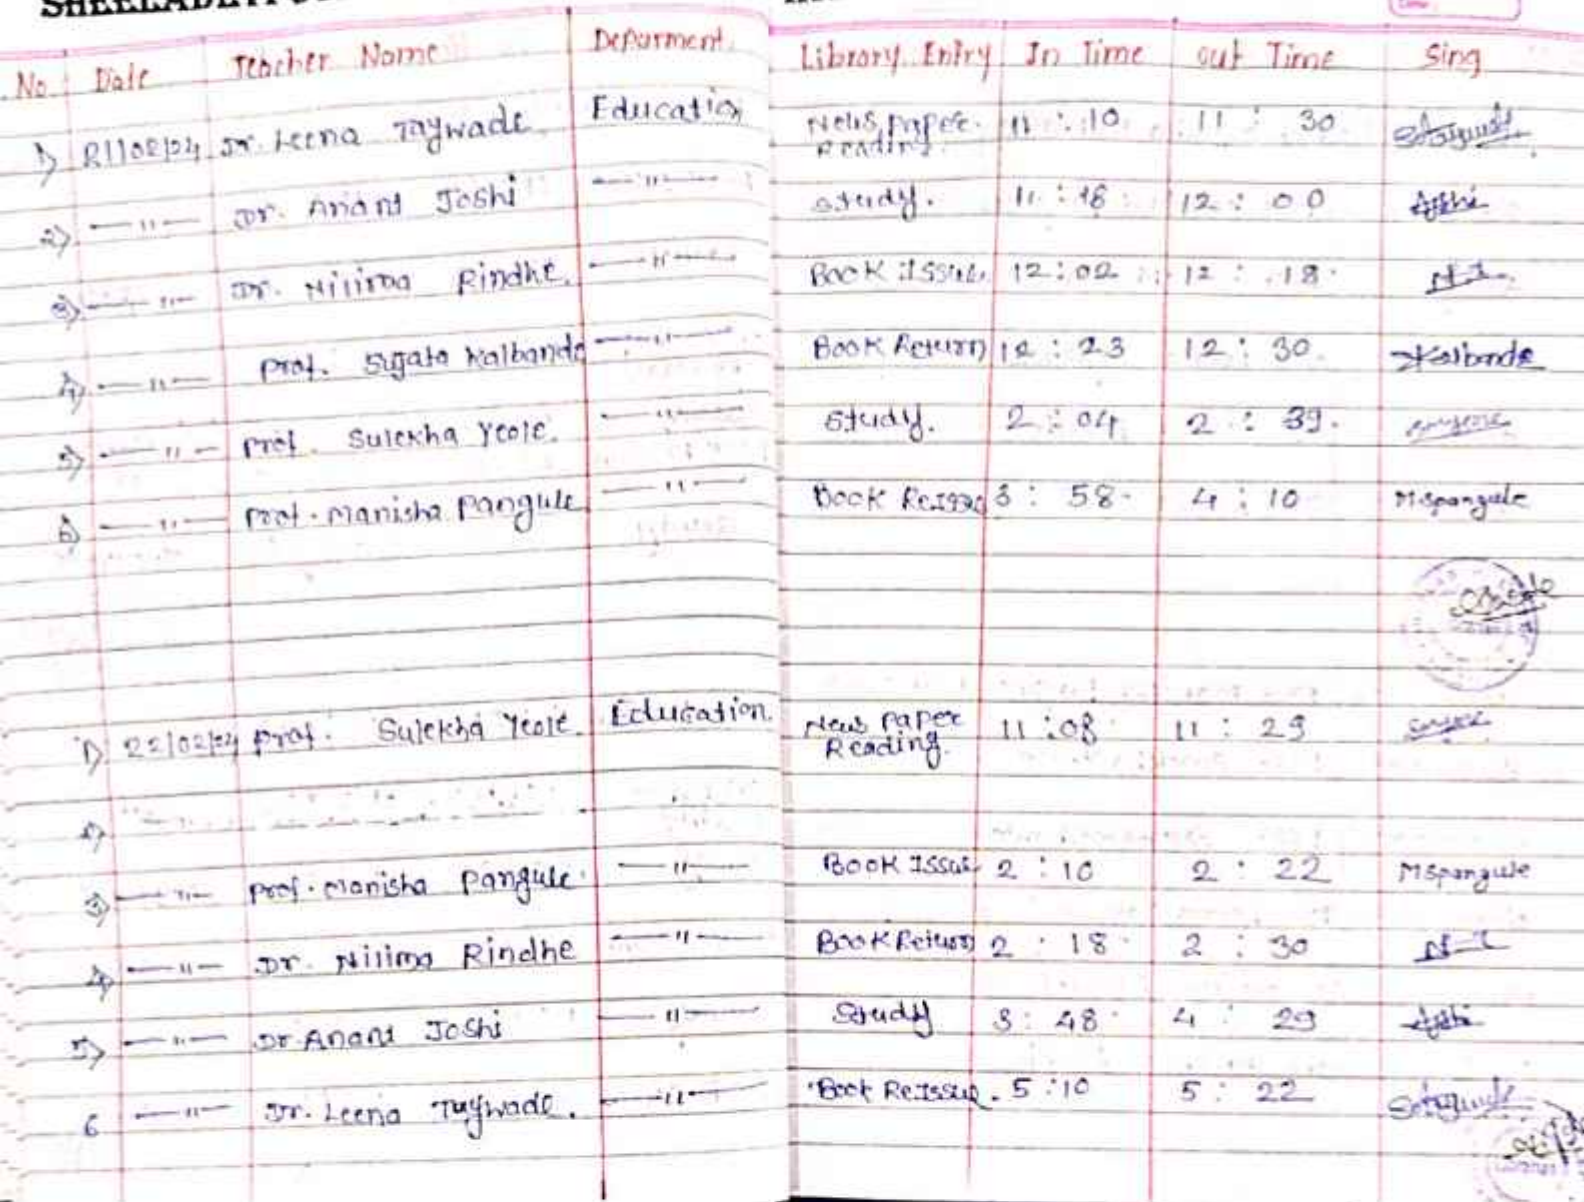 No Date Teacher Name Deparment Library Entry In Time out Time Sing
1) 21/02/24 Dr. Leena Taywade Education News paper Reading 11 : 10 11 : 30
2) —"— Dr. Anant Joshi —"— study. 11 : 18 12 : 00
3) —"— Dr. Nilima Rindhe. —"— Book Issue 12 : 02 12 : 18
4) —"— Prof. Sujata Kalbande —"— Book Return 12 : 23 12 : 30 Kalbande
5) —"— Prof. Sulekha Yeole. —"— Study. 2 : 04 2 : 39
6) —"— Prof. Manisha Pangule —"— Book 3 : 58 4 : 10 Mspangule
1) 22/02/24 Prof. Sulekha Yeole Education News paper Reading 11 : 08 11 : 29
3) —"— Prof. Manisha Pangule —"— Book Issue 2 : 10 2 : 22 Mspangule
4) —"— Dr. Nilima Rindhe —"— Book Return 2 : 18 2 : 30
5) —"— Dr Anant Joshi —"— Study 3 : 48 4 : 29
6 —"— Dr. Leena Taywade. —"— Book Reissue. 5 : 10 5 : 22